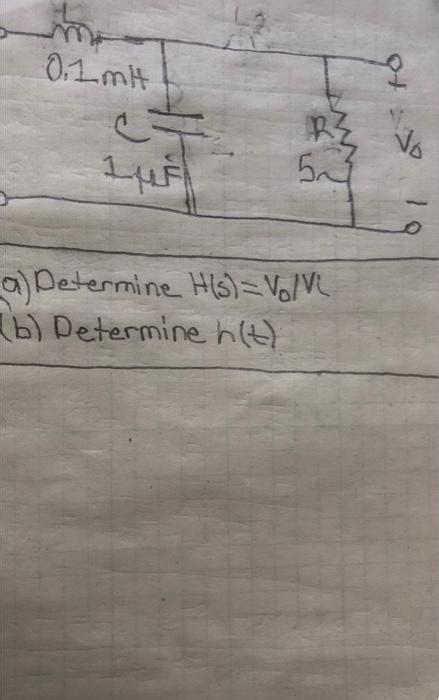 L
0.1mH
C
1μF
R
5Ω
+
Vo
-
a) Determine H(s)=Vo/Vi
(b) Determine h(t)